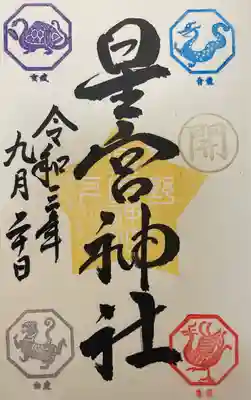 星宮神社
令和三年
九月二十日
玄武
青龍
開
白虎
朱雀